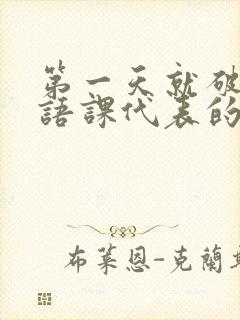 第一天就破
語課代表的
布萊恩-克蘭